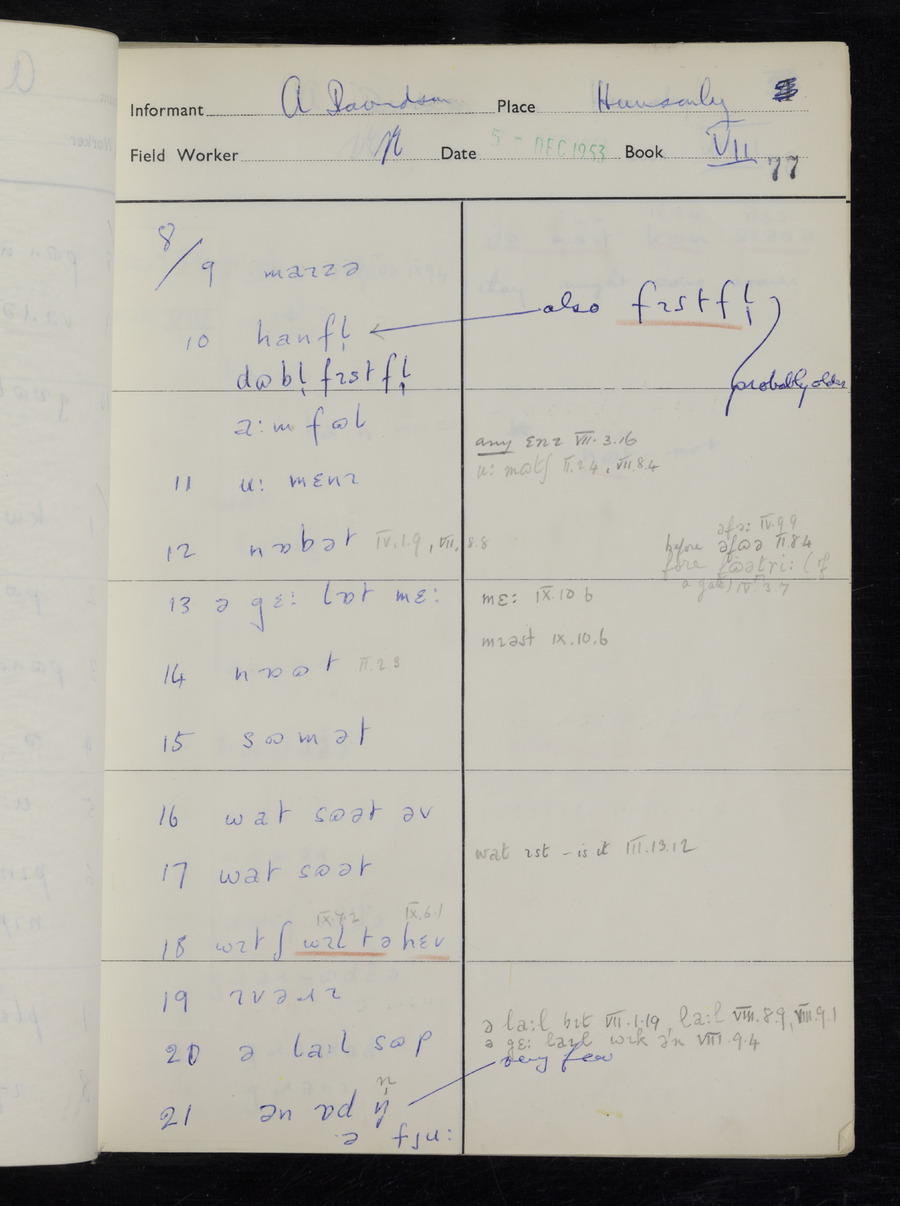 Informant A Davidson Place Hunsonby
Field Worker Date 5 - DEC 1953 Book VII 77
8/9 maɪzə
10 hanfl̩ also fɪstfl̩
dʊbl̩ fɪstfl̩ probably older
a:m fʊl
any ɛnɪ VII. 3.16
11 u: mɛnɪ u: mʊtʃ II.2.4, VII.8.4
əfə: IV.9.9
12 IV.1.9, VII.8.8 before əfʊə II.8.4
fore (of
a gate) IV.3.7
13 ə gɛ: lɑt mɛ: mɛ: IX.10 6
mɪəst IX.10.6
14 II.2 3
15 sʊmət
16 wat sʊət əv
17 wat sʊət wat ɪst - is it III.13.12
IX.9.2 IX.6.1
18 wɪtʃ wɪl tə hɛv
19 ɪvəɹɪ
ə la:l bɪt VII.1.19, la:l VIII.8.9, VIII.9.1
20 ə la:l sʊp ə gɛ: la:l wɪk ən VIII.9.4
very few
21